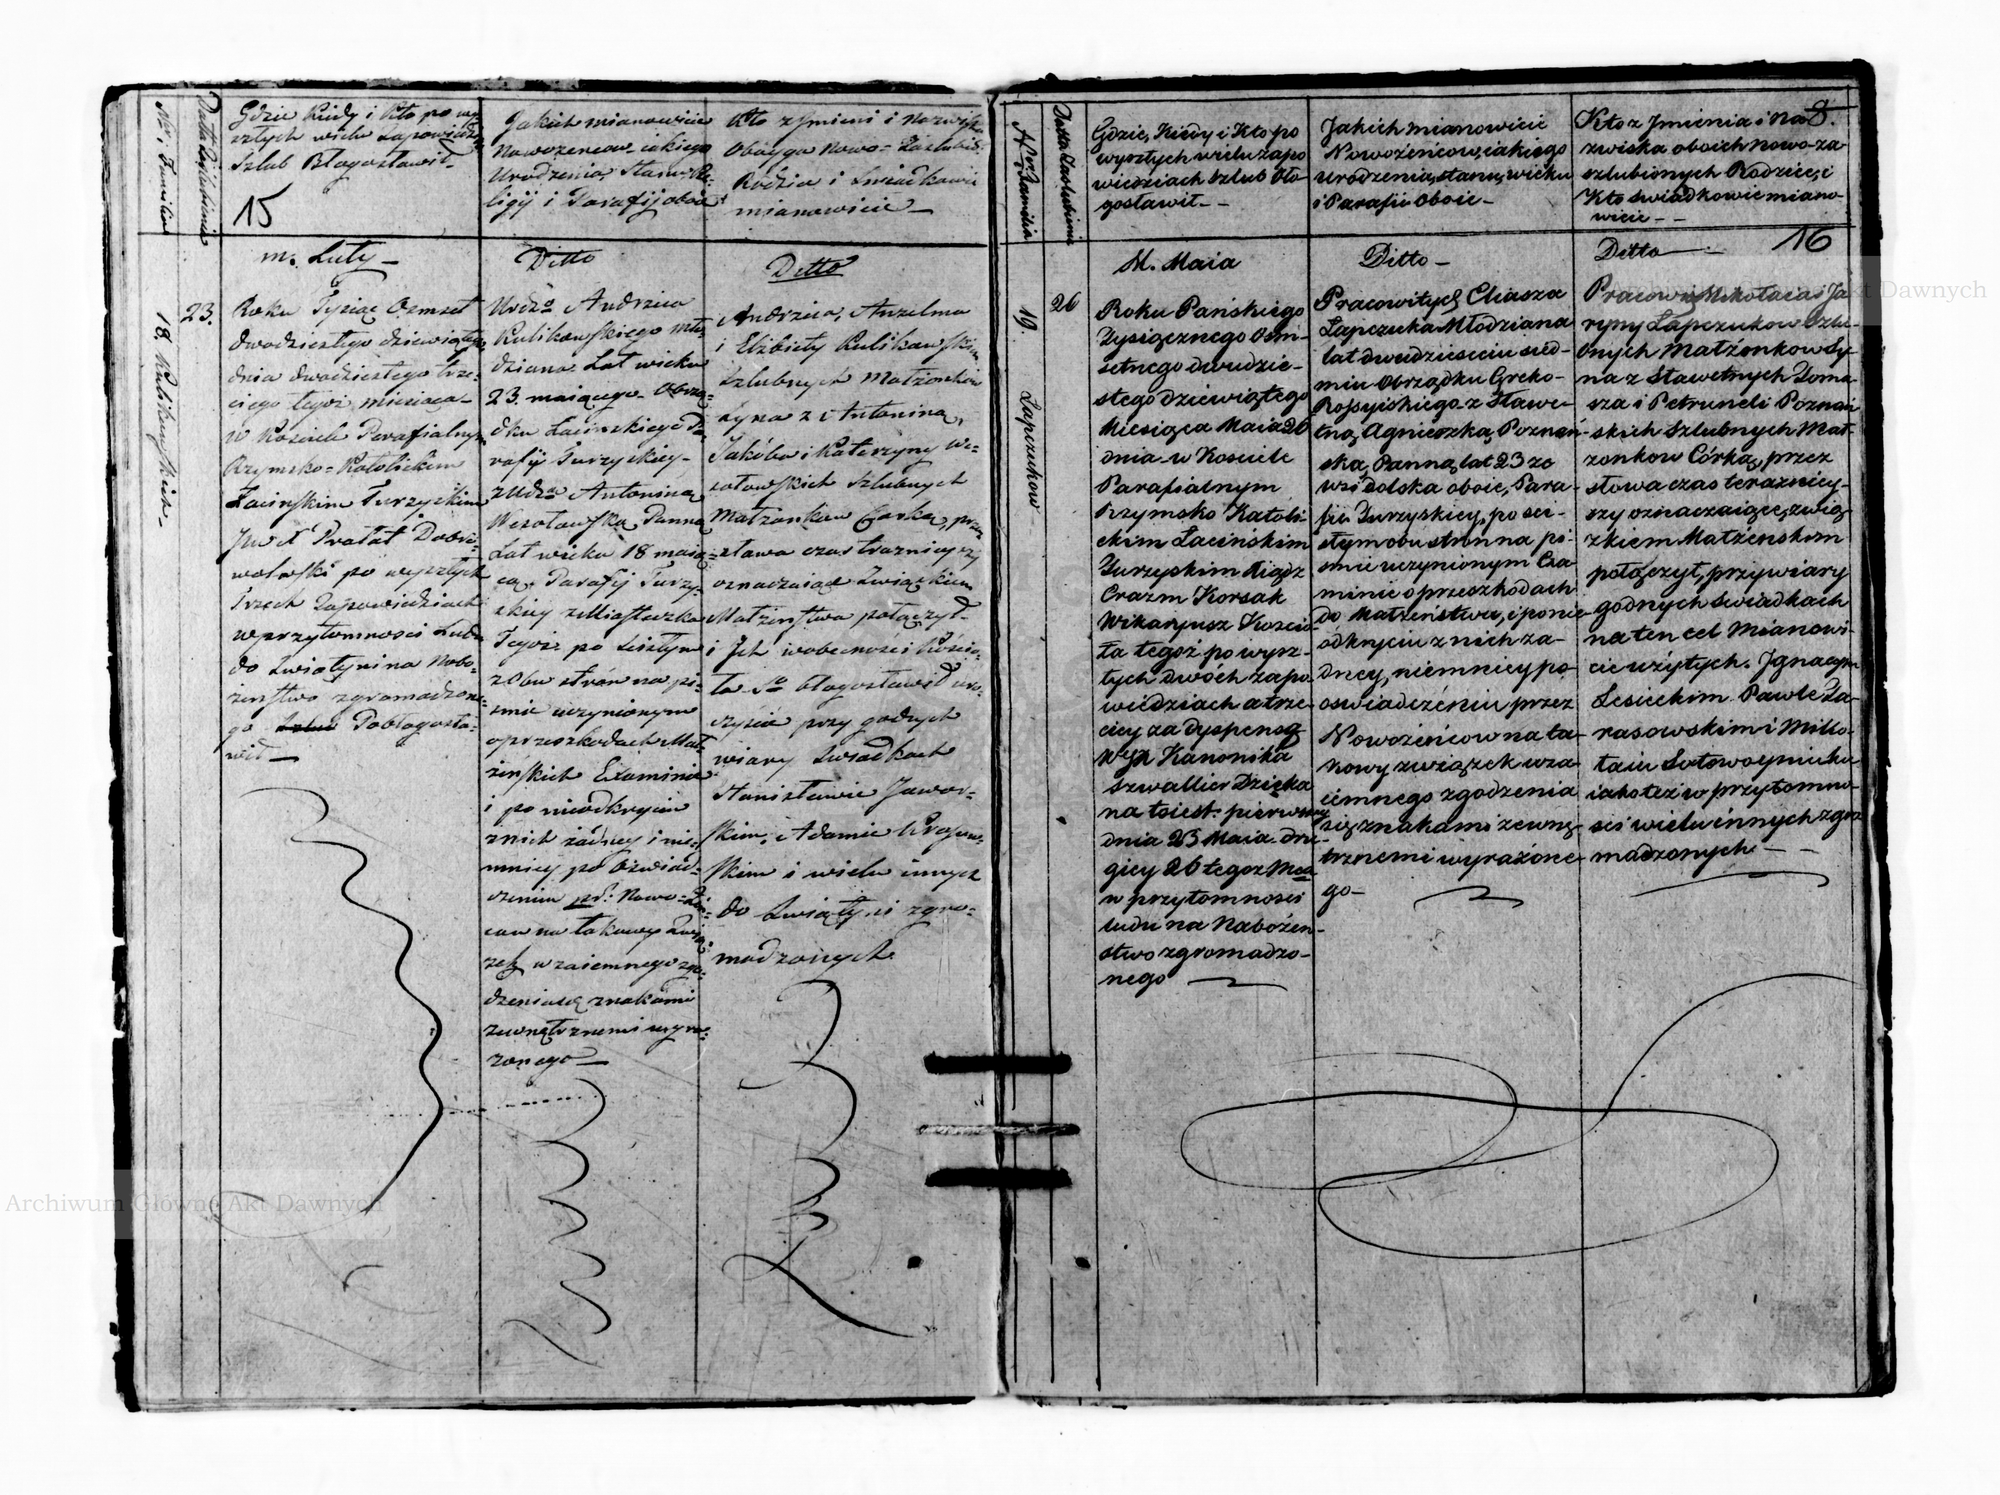 Nr. i Familia
Data Zaślubienia
Gdzie Kiedy i Kto po wy=
szłych wielu Zapowiedziach
Szlub Błogosławił
15
Jakich mianowicie
Nowożencow iakiego
Urodzenia, Stanu Re-
ligij i Parafij oboie
Kto z Jmieni i nazwiska
Oboyga Nowo=Zaślubio
Rodzice i Swiadkowie
mianowicie —
m. Luty —
Ditto
Ditto
18. Kulikowskich
23.
Roku Tysiąc Osmset
dwudziestego dziewiątego
dnia dwudziestego trze-
ciego tegoż miesiąca
w Kosciele Parafialnym
Rzymsko=Katolickim
Łacinskim Turzyskim
JWX Prałat Dobro-
wolski po wyszłych
Trzech Zapowiedziach
w przytomnosci Ludu
do Swiątyni na Nabo-
żenstwo zgromadzone-
go Pobłogosła-
wił —
Urodz Andrzeia
Kulikowskiego mło
dziana Lat wieku
23. maiącego Obrzą-
dku Łacinskiego Pa
rafij Turzyskiey
z Urodz Antoniną
Wesołowską Panną
Lat wieku 18 maią
cą, Parafij Turzy-
skiey z Miasteczka
Tegoż po Scisłym
z obu strón na pi-
smie uczynionym
o przeszkodach Mał-
żenskich Examinie
i po nieodkryciu
z nich żadney i nie-
mniey po Oswiad-
czeniu prz: Nowo=Żeń-
cow na takowy Zwią-
zek wzaiemnego zgo-
dzenia się znakami
zewnętrznemi wyra-
żonego —
Andrzeia, Anzelma
i Elżbiety Kulikowskich
Szlubnych Małżonków
Syna z Antoniną,
Jakóba i Katarzyny We-
sołowskich Szlubnych
Małżonków Corką, przez
słowa czas teraznieyszy
oznaczaiące Związkiem
Małżeństwa połączył
i Jch wobecnosci Koscio-
ła So błogosławił uro-
czyscie przy godnych
wiary Swiadkach
Stanisławie Jawor-
skim, i Adamie
skim i wielu innych
do Swiątyni zgro-
madzonych
Nr. i Familia
Datta Zaslubienia
Gdzie, Kiedy i Kto po
wyszłych wielu zapo
wiedziach szlub bło-
gosławił —
Jakich mianowicie
Nowożeńcow, iakiego
urodzenia, stanu, wieku
i Parafii oboie —
Kto z Jmienia i na 8.
zwiska oboich nowo za-
szlubionych Rodzice, i
Kto swiadkowie miano-
wicie — —
16
M. Maia
Ditto —
Ditto —
19 Łapczukow
26
Roku Pańskiego
Tysiącznego Ośm-
setnego dwudzie-
stego dziewiątego
Miesiąca Maia 26
dnia w Kosciele
Parafialnym
Rzymsko Katoli
ckim Łacińskim
Turzyskim Xiądz
Erazm Korsak
Wikaryusz Koscio-
ła tegoż po wysz-
łych dwóch zapo-
wiedziach a trze-
ciey za dyspensą
WJX Kanonika
Szwallier Dzieka
na to iest: pierwszey
dnia 23 Maia dru-
giey 26 tegoz Msca
w przytomnosci
ludu na Nabożeń-
stwo zgromadzo-
nego —
Pracowitych Eliasza
Łapczuka Młodziana
lat dwudziesciu sied-
miu Obrządku Greko-
Rossyiskiego z Sławe-
tną Agnieszką Poznań-
ską, Panną lat 23 ze
wsi dolska oboie, Para-
fii Turzyskiey, po sci-
słym obu stron na pi-
smie uczynionym Exa
minie o przeszkodach
do Małżeństwa, i po nie-
odkryciu z nich ża-
dney, niemniey po
oswiadczeniu przez
Nowożeńcow na ta-
kowy związek wza-
iemnego zgodzenia
się znakami zewnę-
trznemi wyrażone-
go —
Pracow Mikołaia i Ja
ryny Łapczukow Szlu-
bnych Małżonkow Sy-
na z Sławetnych Toma-
sza i Petruneli Poznań
skich Szlubnych Mał-
żonkow Córką, przez
słowa czas terazniey-
szy oznaczaiące, zwią-
zkiem Małżenskim
połączył, przy wiary
godnych Swiadkach
na ten cel Mianowi-
cie użytych. Jgnacym
Lesieckim Pawle Ta-
rasowskim i Miko-
łaiu
iako też w przytomno-
sci wielu innych zgro
madzonych — —
Archiwum Główne Akt Dawnych
Archiwum Główne Akt Dawnych